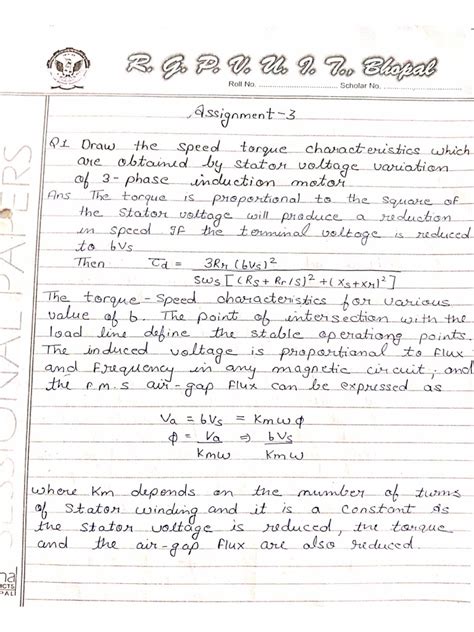 R. G. P. V. U. I. T., Bhopal
Roll No. Scholar No.
Assignment-3
Q1 Draw the speed torque characteristics which
are obtained by stator voltage variation
of 3-phase induction motor
Ans The torque is proportional to the square of
the stator voltage will produce a reduction
in speed If the terminal voltage is reduced
to bVs
Then τd = 3Rr (bVs)² / Sωs [(Rs + Rr/s)² + (Xs+Xr)²]
The torque-Speed characteristics for various
value of b. The point of intersection with the
load line define the stable operationg points.
The induced voltage is proportional to Flux
and Frequency in any magnetic circuit, and
the r.m.s air-gap Flux can be expressed as
Va = bVs = Kmωφ
φ = Va / Kmω ⇒ bVs / Kmω
where Km depends on the number of turns
of Stator winding and it is a constant As
the stator voltage is reduced, the torque
and the air-gap Flux are also reduced.
SESSIONAL PAPERS